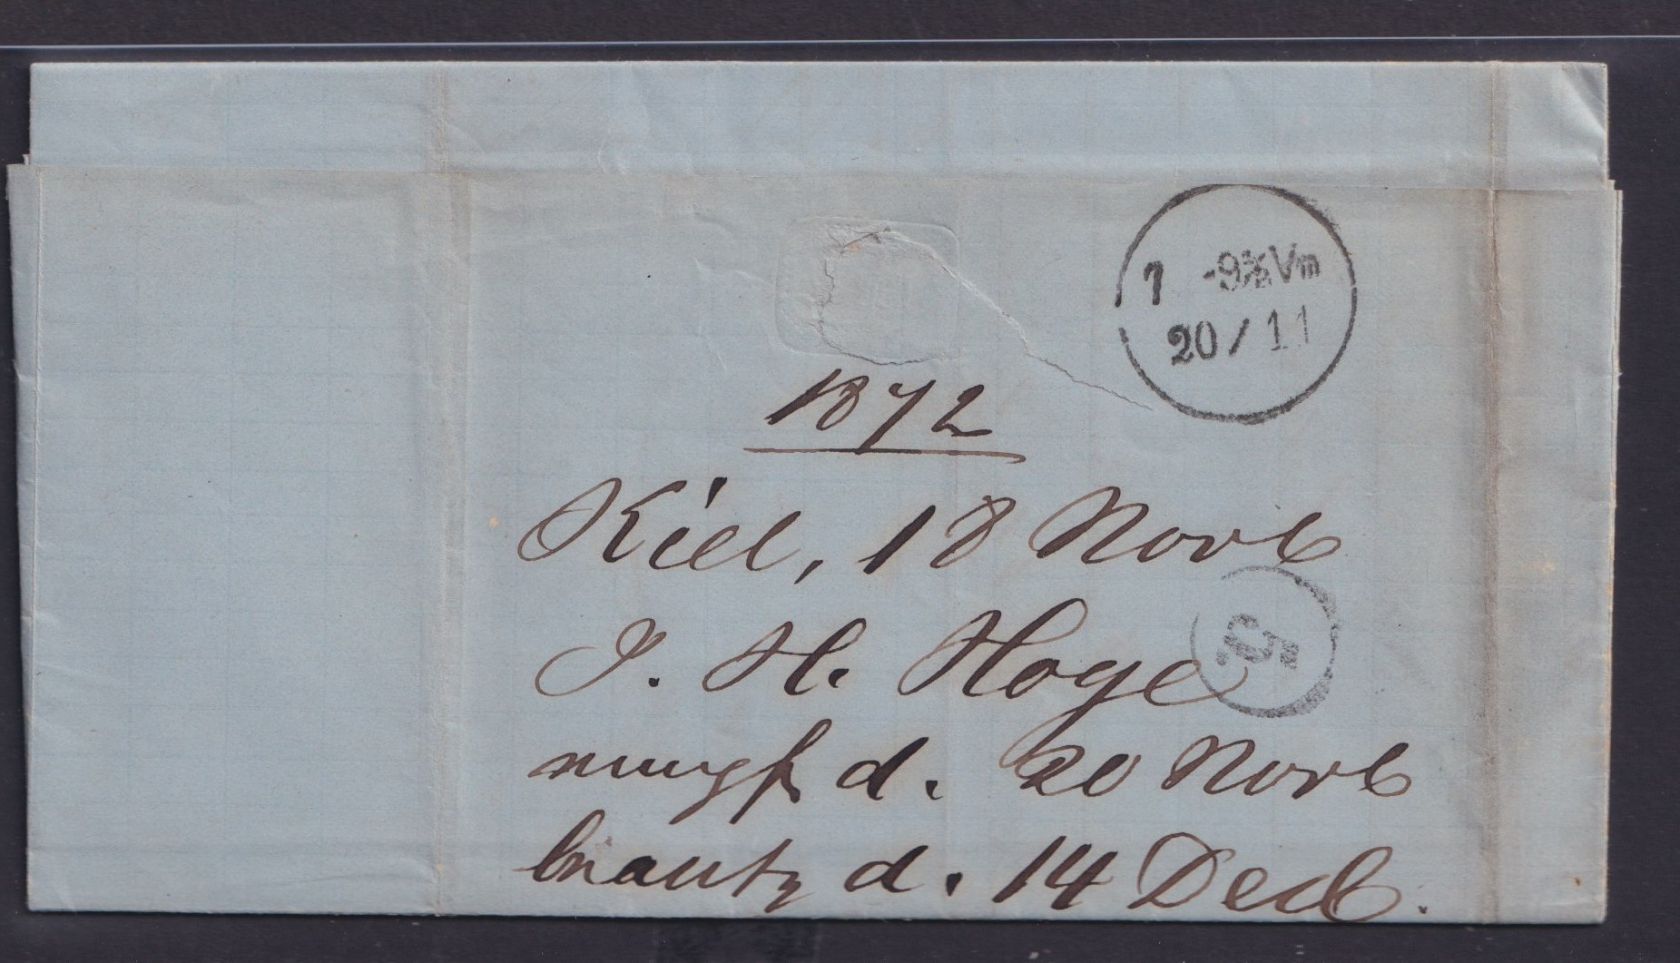 1 -9½Vm
20/11
1872
Kiel, 18 Novb
J. H. Hoge
empf d. 20 Novb
beantw d. 14 Decb.